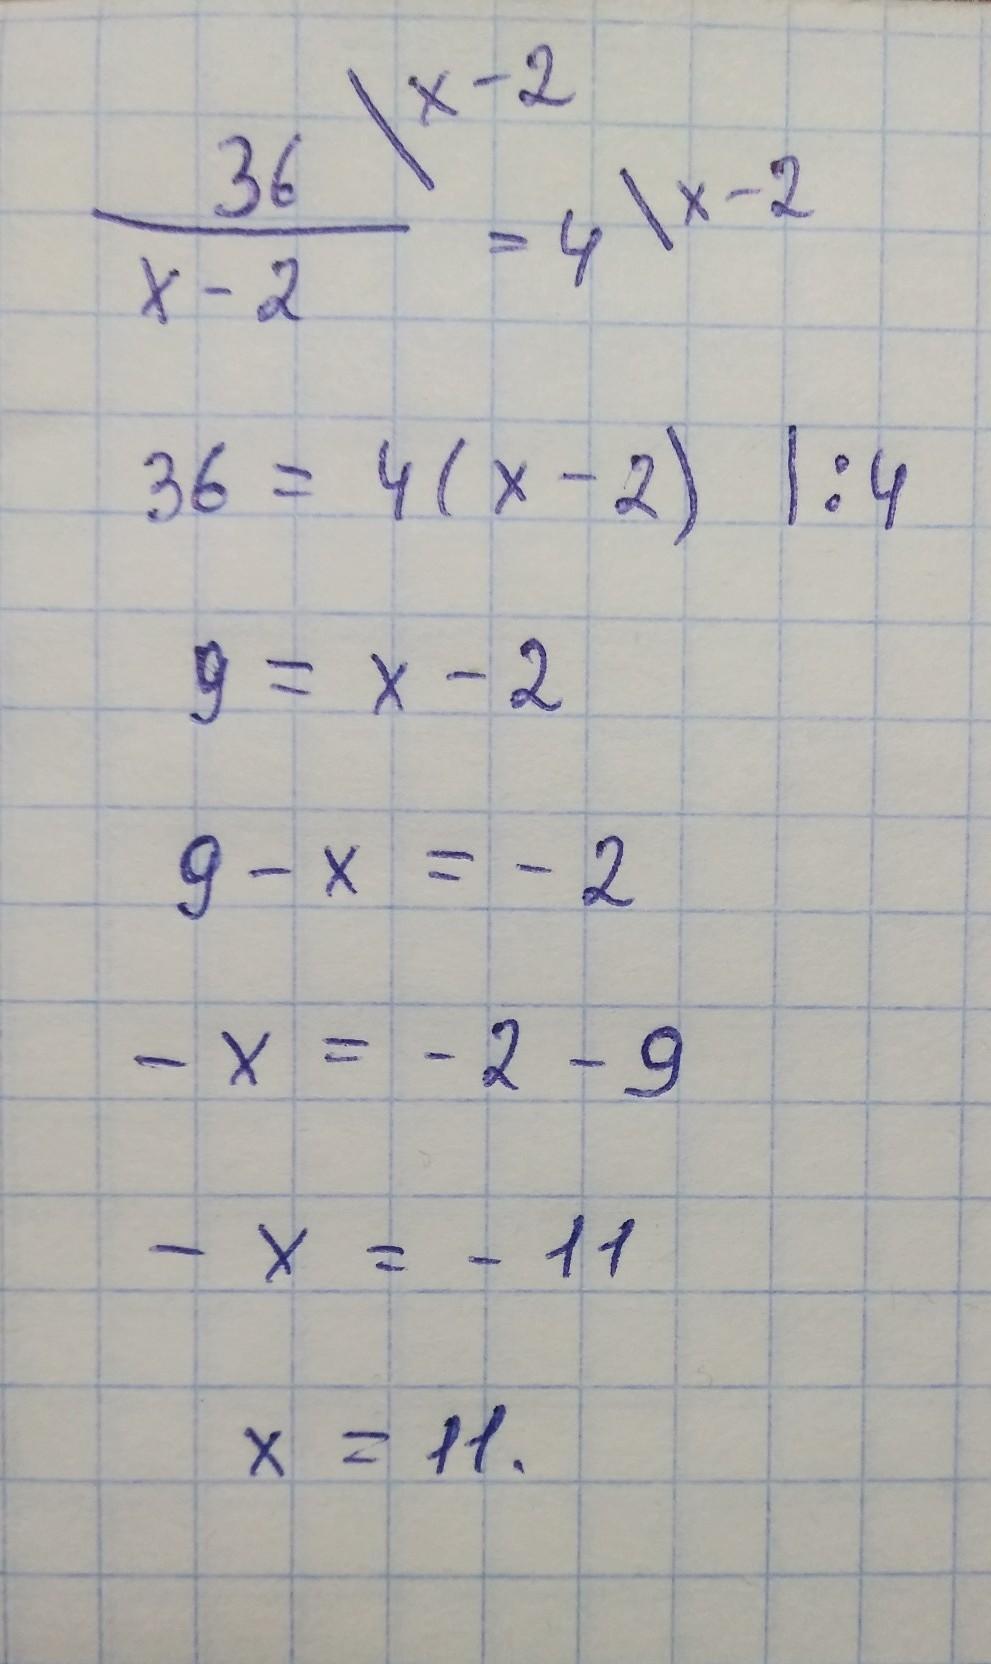 36 \x-2
───── = 4 \x-2
x - 2
36 = 4(x - 2) |:4
9 = x - 2
9 - x = - 2
- x = - 2 - 9
- x = - 11
x = 11.